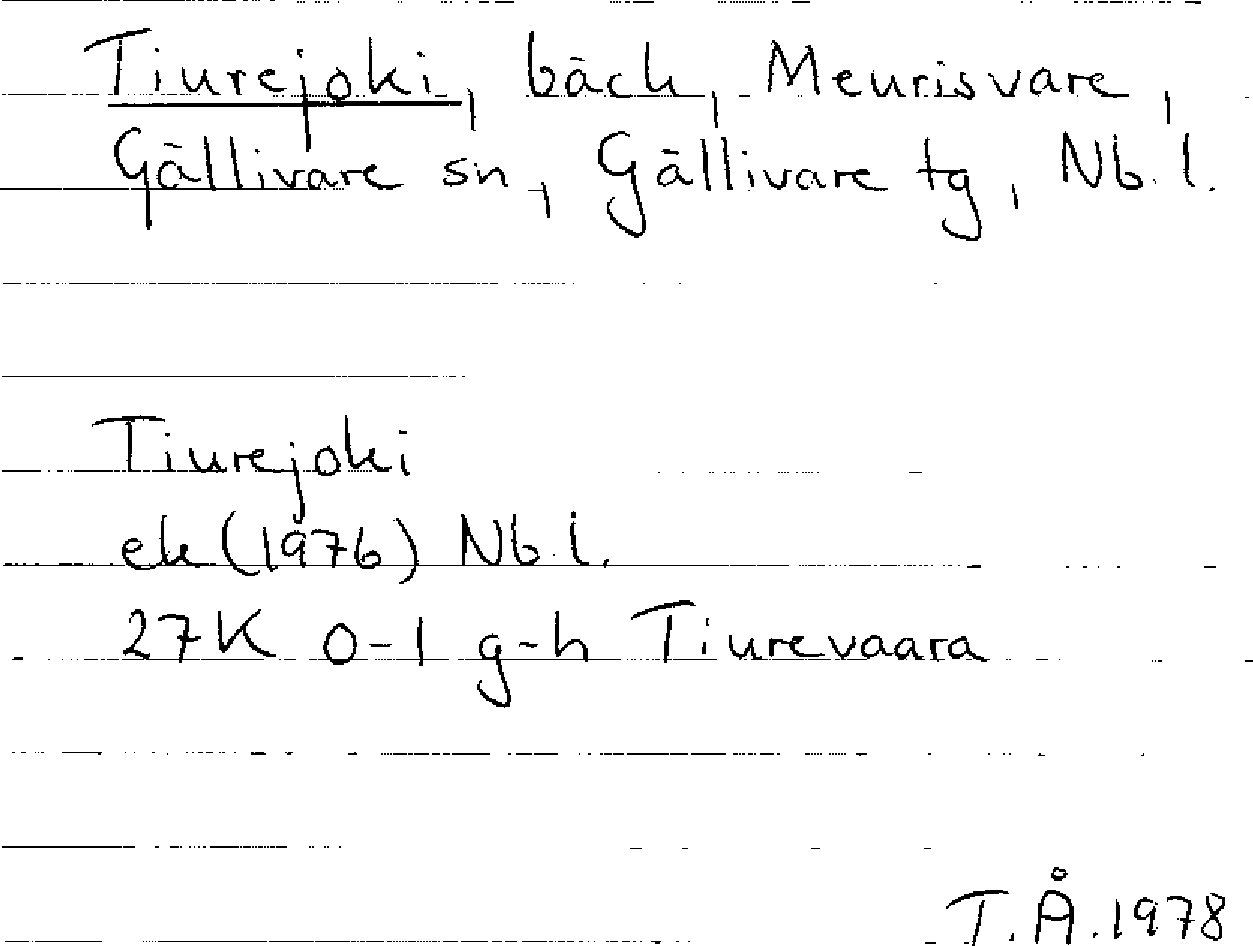 Tiurejoki, bäck, Meurisvare,
Gällivare sn, Gällivare tg, Nb. l.
Tiurejoki
ek (1976) Nb. l.
27K 0-1 g-h Tiurevaara
T.Å. 1978